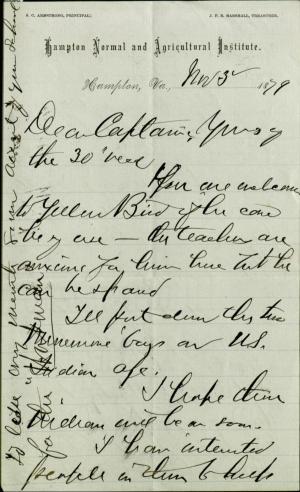 S. C. ARMSTRONG, PRINCIPAL.
J. F. B. MARSHALL, TREASURER.
Hampton Normal and Agricultural Institute.
Hampton, Va., Nov 3 1879
Dear Captain, Yours of
the 30 recd
You are welcome
to Yellow Bird if he can
be of use — the teachers are
anxious for him here but he
can be spared
I'll put down the two
Menominee boys on U.S.
Indian
I hope their
will be on soon.
I have interested
people in them to